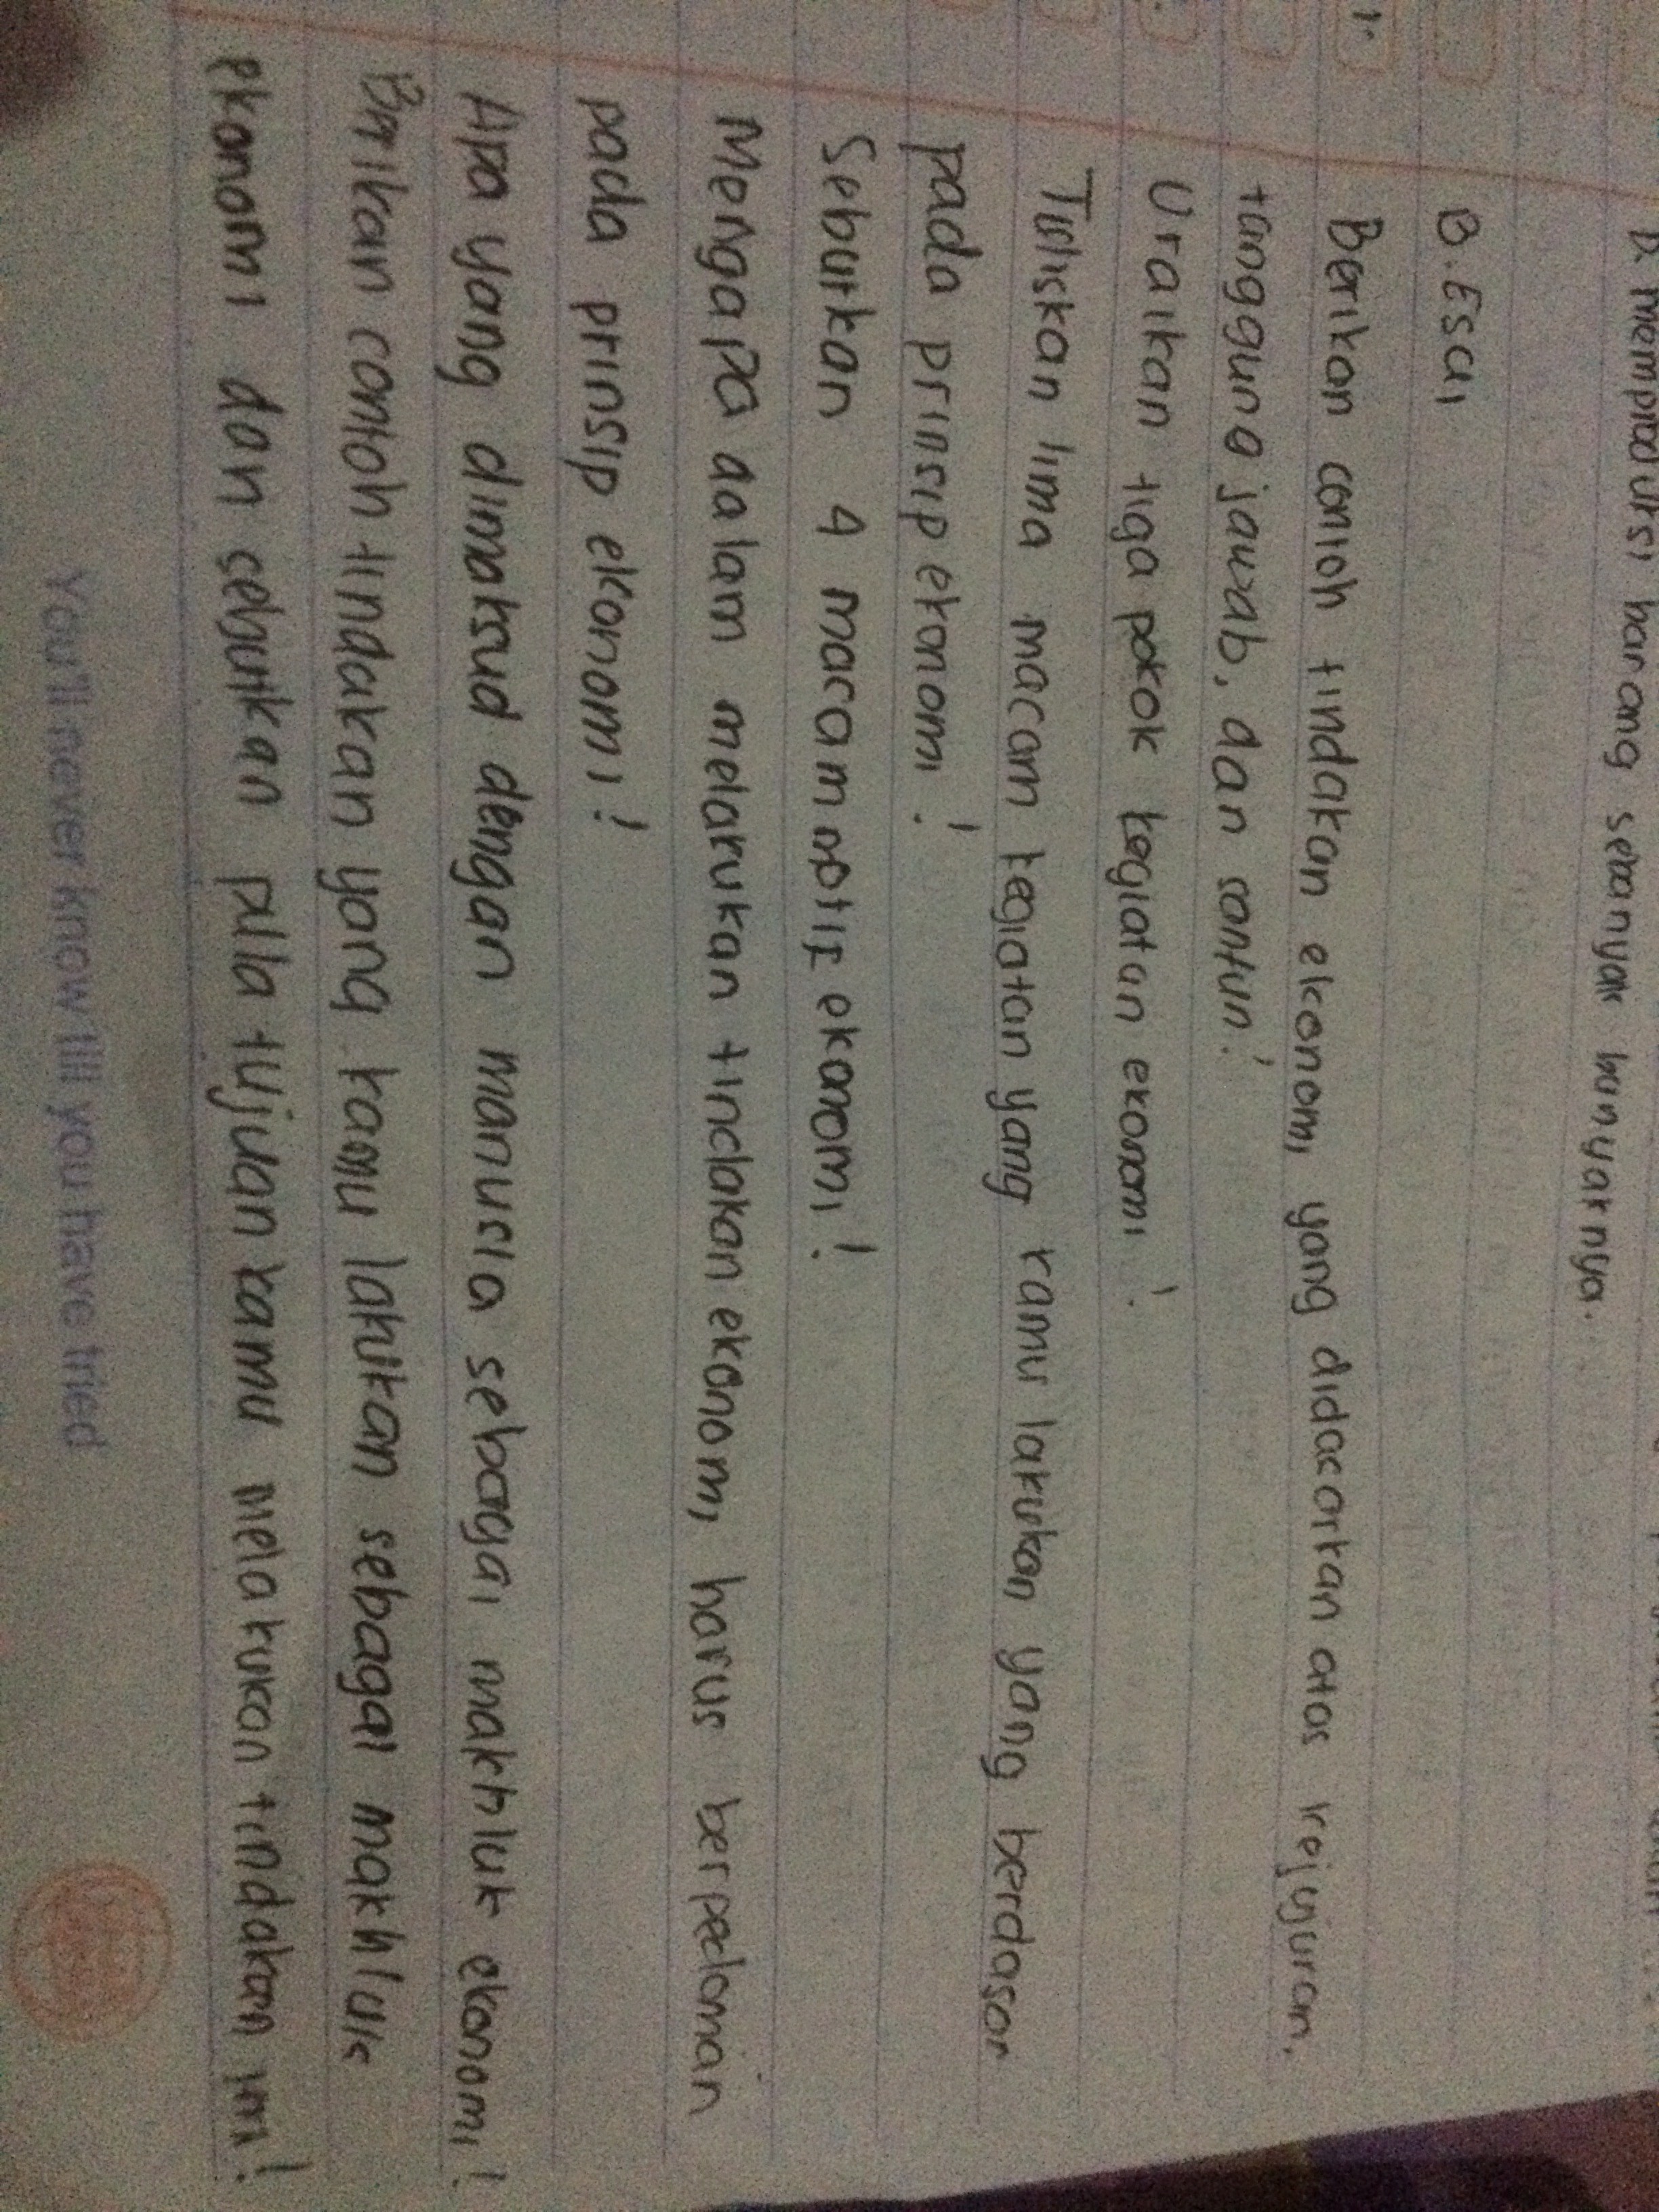 D. memproduksi barang sebanyak banyaknya.
B. Esai
1.
Berikan contoh tindakan ekonomi yang didasarkan atas kejujuran,
tanggung jawab, dan santun!
Uraikan tiga pokok kegiatan ekonomi!
Tuliskan lima macam kegiatan yang kamu lakukan yang berdasar
pada prinsip ekonomi!
Sebutkan 4 macam motif ekonomi!
Mengapa dalam melakukan tindakan ekonomi harus berpedoman
pada prinsip ekonomi!
Apa yang dimaksud dengan manusia sebagai makhluk ekonomi!
Berikan contoh tindakan yang kamu lakukan sebagai makhluk
ekonomi dan sebutkan pula tujuan kamu melakukan tindakan ini!
You'll never know till you have tried